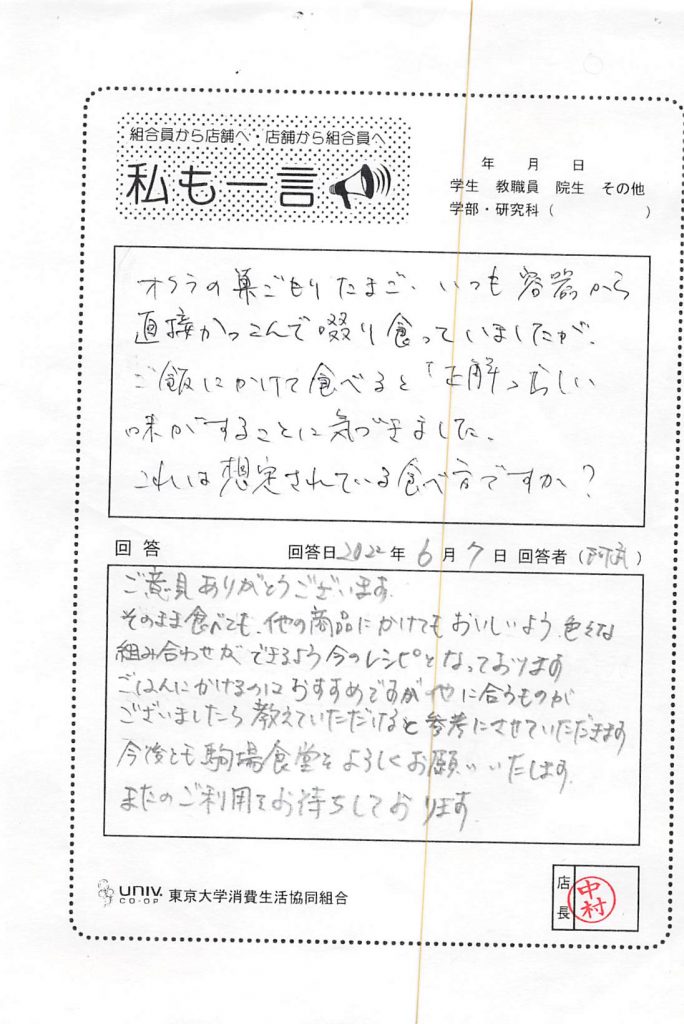 組合員から店舗へ・店舗から組合員へ
私も一言
年 月 日
学生 教職員 院生 その他
学部・研究科（ ）
オクラの巣ごもりたまご、いつも容器から
直接かっこんで啜り食っていましたが、
ご飯にかけて食べると「正解」らしい
味がすることに気づきました。
これは想定されている食べ方ですか？
回答 回答日2022年 6月 7日 回答者（ ）
ご意見ありがとうございます。
そのまま食べても、他の商品にかけてもおいしいよう、色々な
組み合わせができるよう今のレシピとなっております
ごはんにかけるのはおすすめですが他に合うものが
ございましたら教えていただけると参考にさせていただきます
今後とも駒場食堂をよろしくお願いいたします。
またのご利用をお待ちしております。
UNIV. CO-OP 東京大学消費生活協同組合
店長 中村